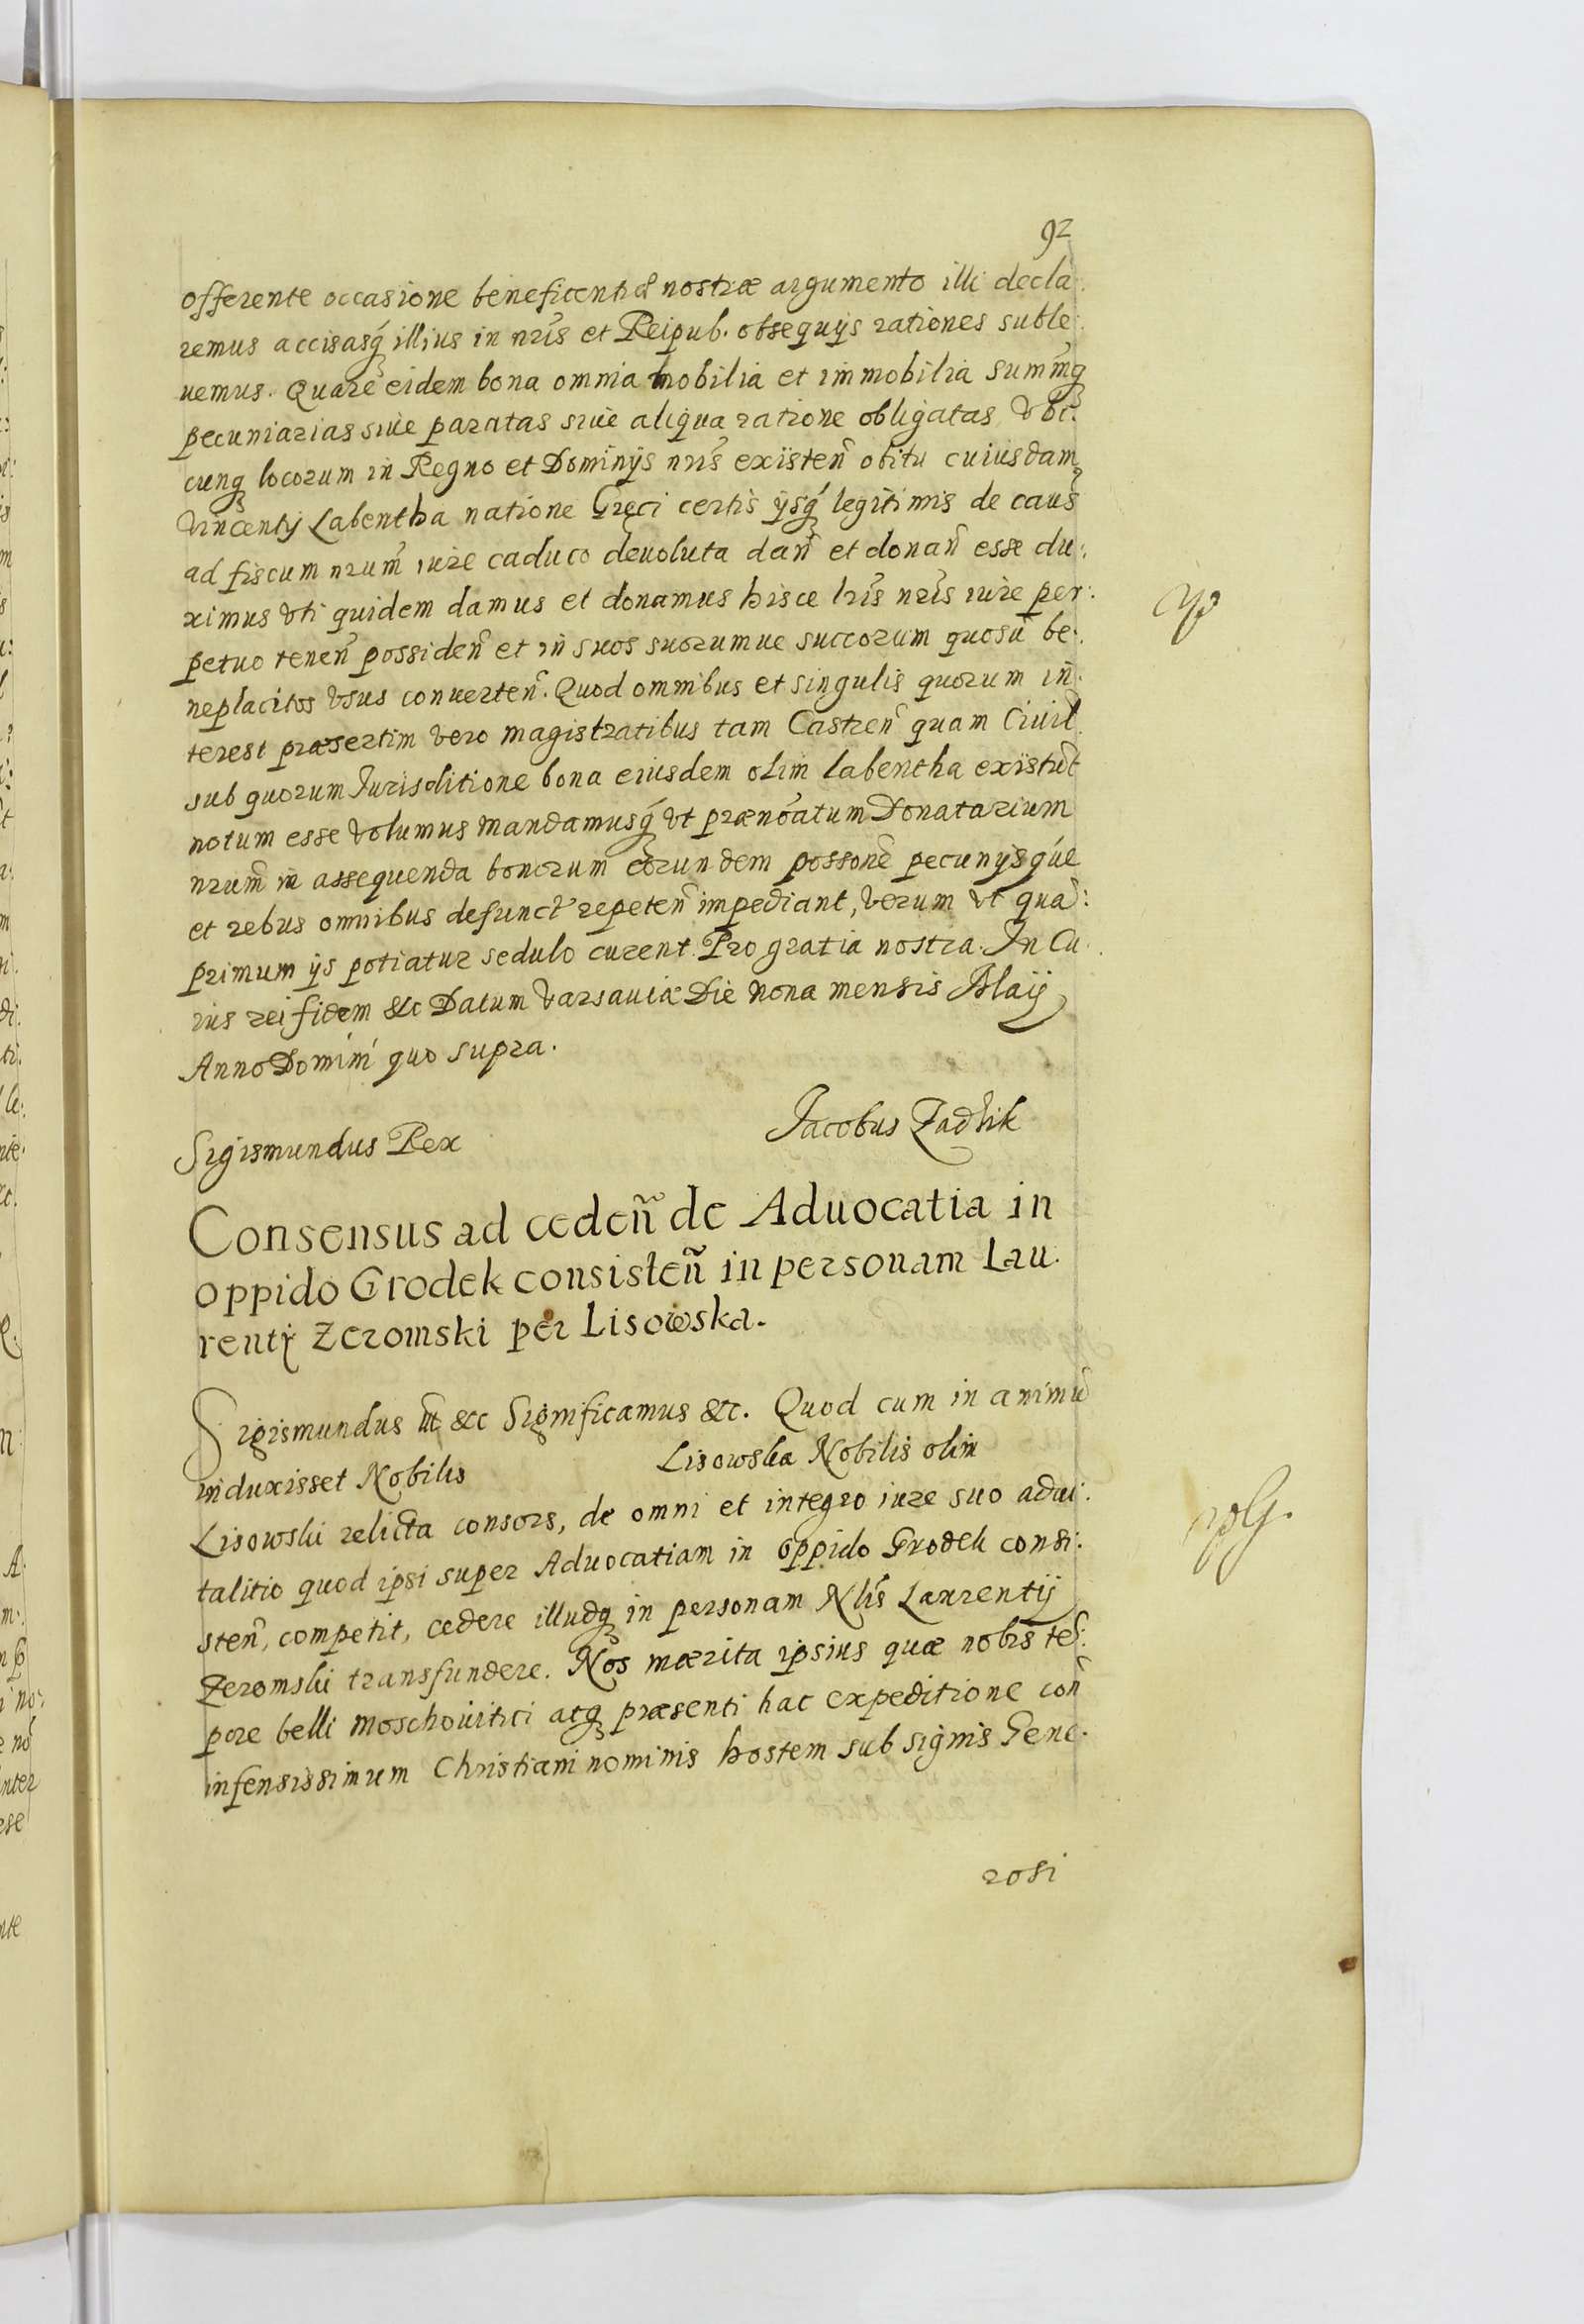 92
offerente occasione beneficentiæ nostræ argumento illi decla:
remus accisasq́ illius in nr̃is et Reipub. obsequijs rationes suble:
uemus. Quare eidem bona omnia mobilia et immobilia summasq
pecuniarias siue paratas siue aliqua ratione obligatas vbi:
cunq locorum in Regno et Dominijs nr̃is existeñ obitu cuiusdam
Vincentij Labentha natione Gręci certis ijsq́ legitimis de caus̃
ad fiscum nrum̃ iure caduco deuoluta dañ et donañ esse du:
ximus vti quidem damus et donamus hisce lr̃is nr̃is iure per:
petuo teneñ possideñ et in suos suorumue succorum quosũ be:
neplacitos vsus conuerteñ. Quod omnibus et singulis quorum in:
terest præsertim vero magistratibus tam Castreñ quam Ciuil
sub quorum Jurisditione bona eiusdem olim labentha existũt
notum esse volumus mandamusq́ vt prænoãtum Donatarium
nrum̃ in assequenda bonorum eorundem possonẽ pecunijsq́ue
et rebus omnibus defunct repeteñ impediant, verum vt quã:
primum ijs potiatur sedulo curent. Pro gratia nostra. In Cu:
ius rei fidem &c Datum Varsauiæ Die nona mensis Maij
Anno Domini quo supra.
Sigismundus Rex Jacobus Zadzik
Consensus ad cedeñ de Aduocatia in
oppido Grodek consisteñ in personam Lau:
rentij Zeromski per Lisowska.
Sigismundus ut &c Significamus &c. Quod cum in animũ
induxisset Nobilis Lisowska Nobilis olim
Lisowski relicta consors, de omni et integro iure suo adui:
talitio quod ipsi super Aduocatiam in oppido Grodek consi:
steñ, competit, cedere illudq in personam Nlis̃ Laurentij
Zeromski transfundere. Nos mærita ipsius quæ nobis tẽ:
pore belli moschouitici atq præsenti hac expeditione coñ
infensissimum Christiani nominis hostem sub signis Gene:
rosi